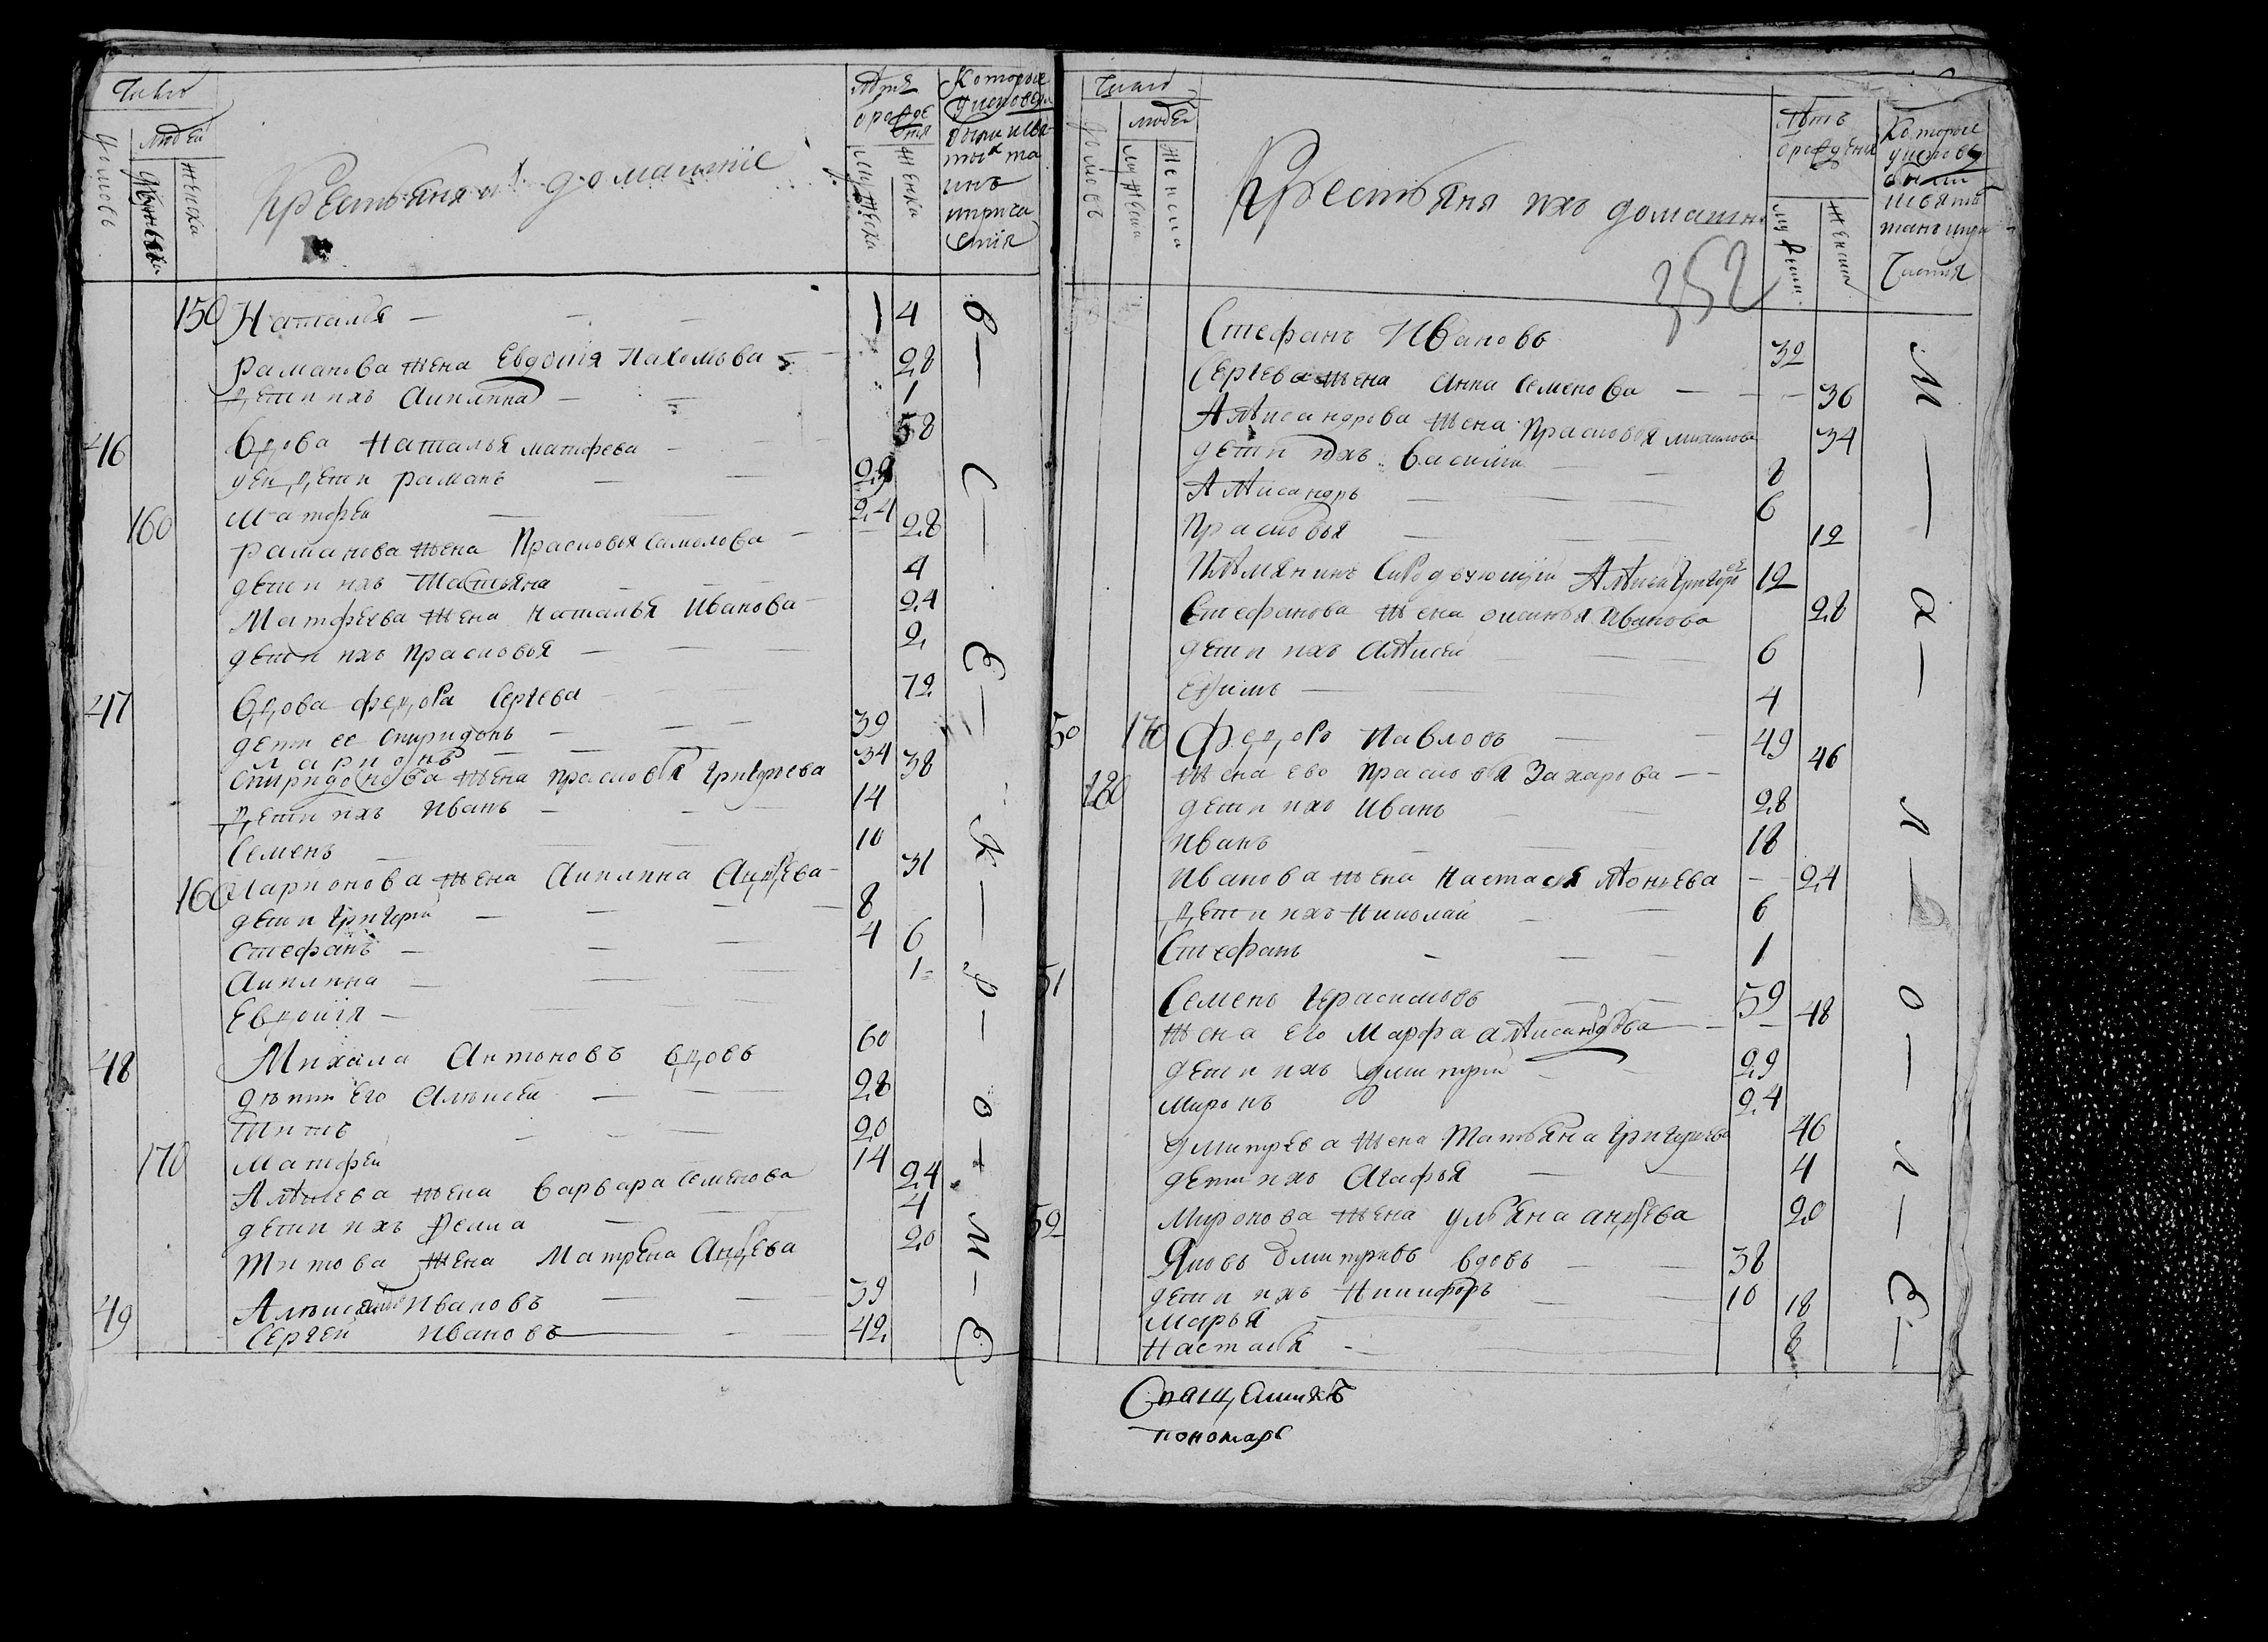 Число
людей
домовъ
женска
Крестьяня ихъ домашніе
Лѣтя
мужеска
женска
Которые
150 Наталья — 4
Раманова жена Евдокія Пахомьва — 28
дети ихъ Акилина — 1
46 вдова Наталья матфева — 58
уеи дети раманъ — 29
160 матфеи — 24
раманова жена Прасковья самолова — 28
дети ихъ Татьяна — 4
Матфеева жена наталья Иванова — 24
дети ихъ прасковья — 2
47 вдова федора Сергева — 72
дети ее спиридонъ — 39
ларионъ — 34
Спиридонова жена прасковья григорьева 38
дети ихъ иванъ — 14
Семенъ — 10
160 Ларионова жена Акилина Андрева — 31
дети григорий — 8
Стефанъ — 4
Акилина — 6
Евдокия — 1
48 Михаила Антоновъ вдовъ 60
дѣти его Алѣксеи — 28
Титъ — 20
170 Матфеи 14
Алѣксева жена варвара семенова 24
дети ихъ 4
Титова жена Матрена Андрева 20
49 Ивановъ — 39
Сергеи Ивановъ — 42
Число
людей
домовъ
женска
Крестьяня ихъ домашни
352
Лѣтъ
Которые
Стефанъ Ивановъ 32
Сергева жена анна семенова — 36
Алѣксандрова жена Прасковья михаилова 34
дети ихъ василии 8
Алѣксандръ — 6
Прасковья — 12
Плѣмянникъ Алѣксѣй григорь 12
Стефанова жена Иванова 28
дети ихъ алѣксеи 6
ефимъ — 4
50 170 федоръ Павловъ — 49
жена ево прасковья Захарова — 46
180 дети ихъ иванъ 28
иванъ 18
иванова жена настасья — 24
дети ихъ николаи 6
Стефанъ — 1
51 Семенъ герасимовъ — 59
жена его Марфа алѣксандрова — 48
дети ихъ дмитрий 29
миронъ 24
дмитрева жена татьяна григорьева 46
дети ихъ агафья — 4
52 миронова жена ульяна андрева 20
Яковъ дмитривъ вдовъ — 38
дети ихъ никифоръ 10
марья 18
настасья — 8
пономарь